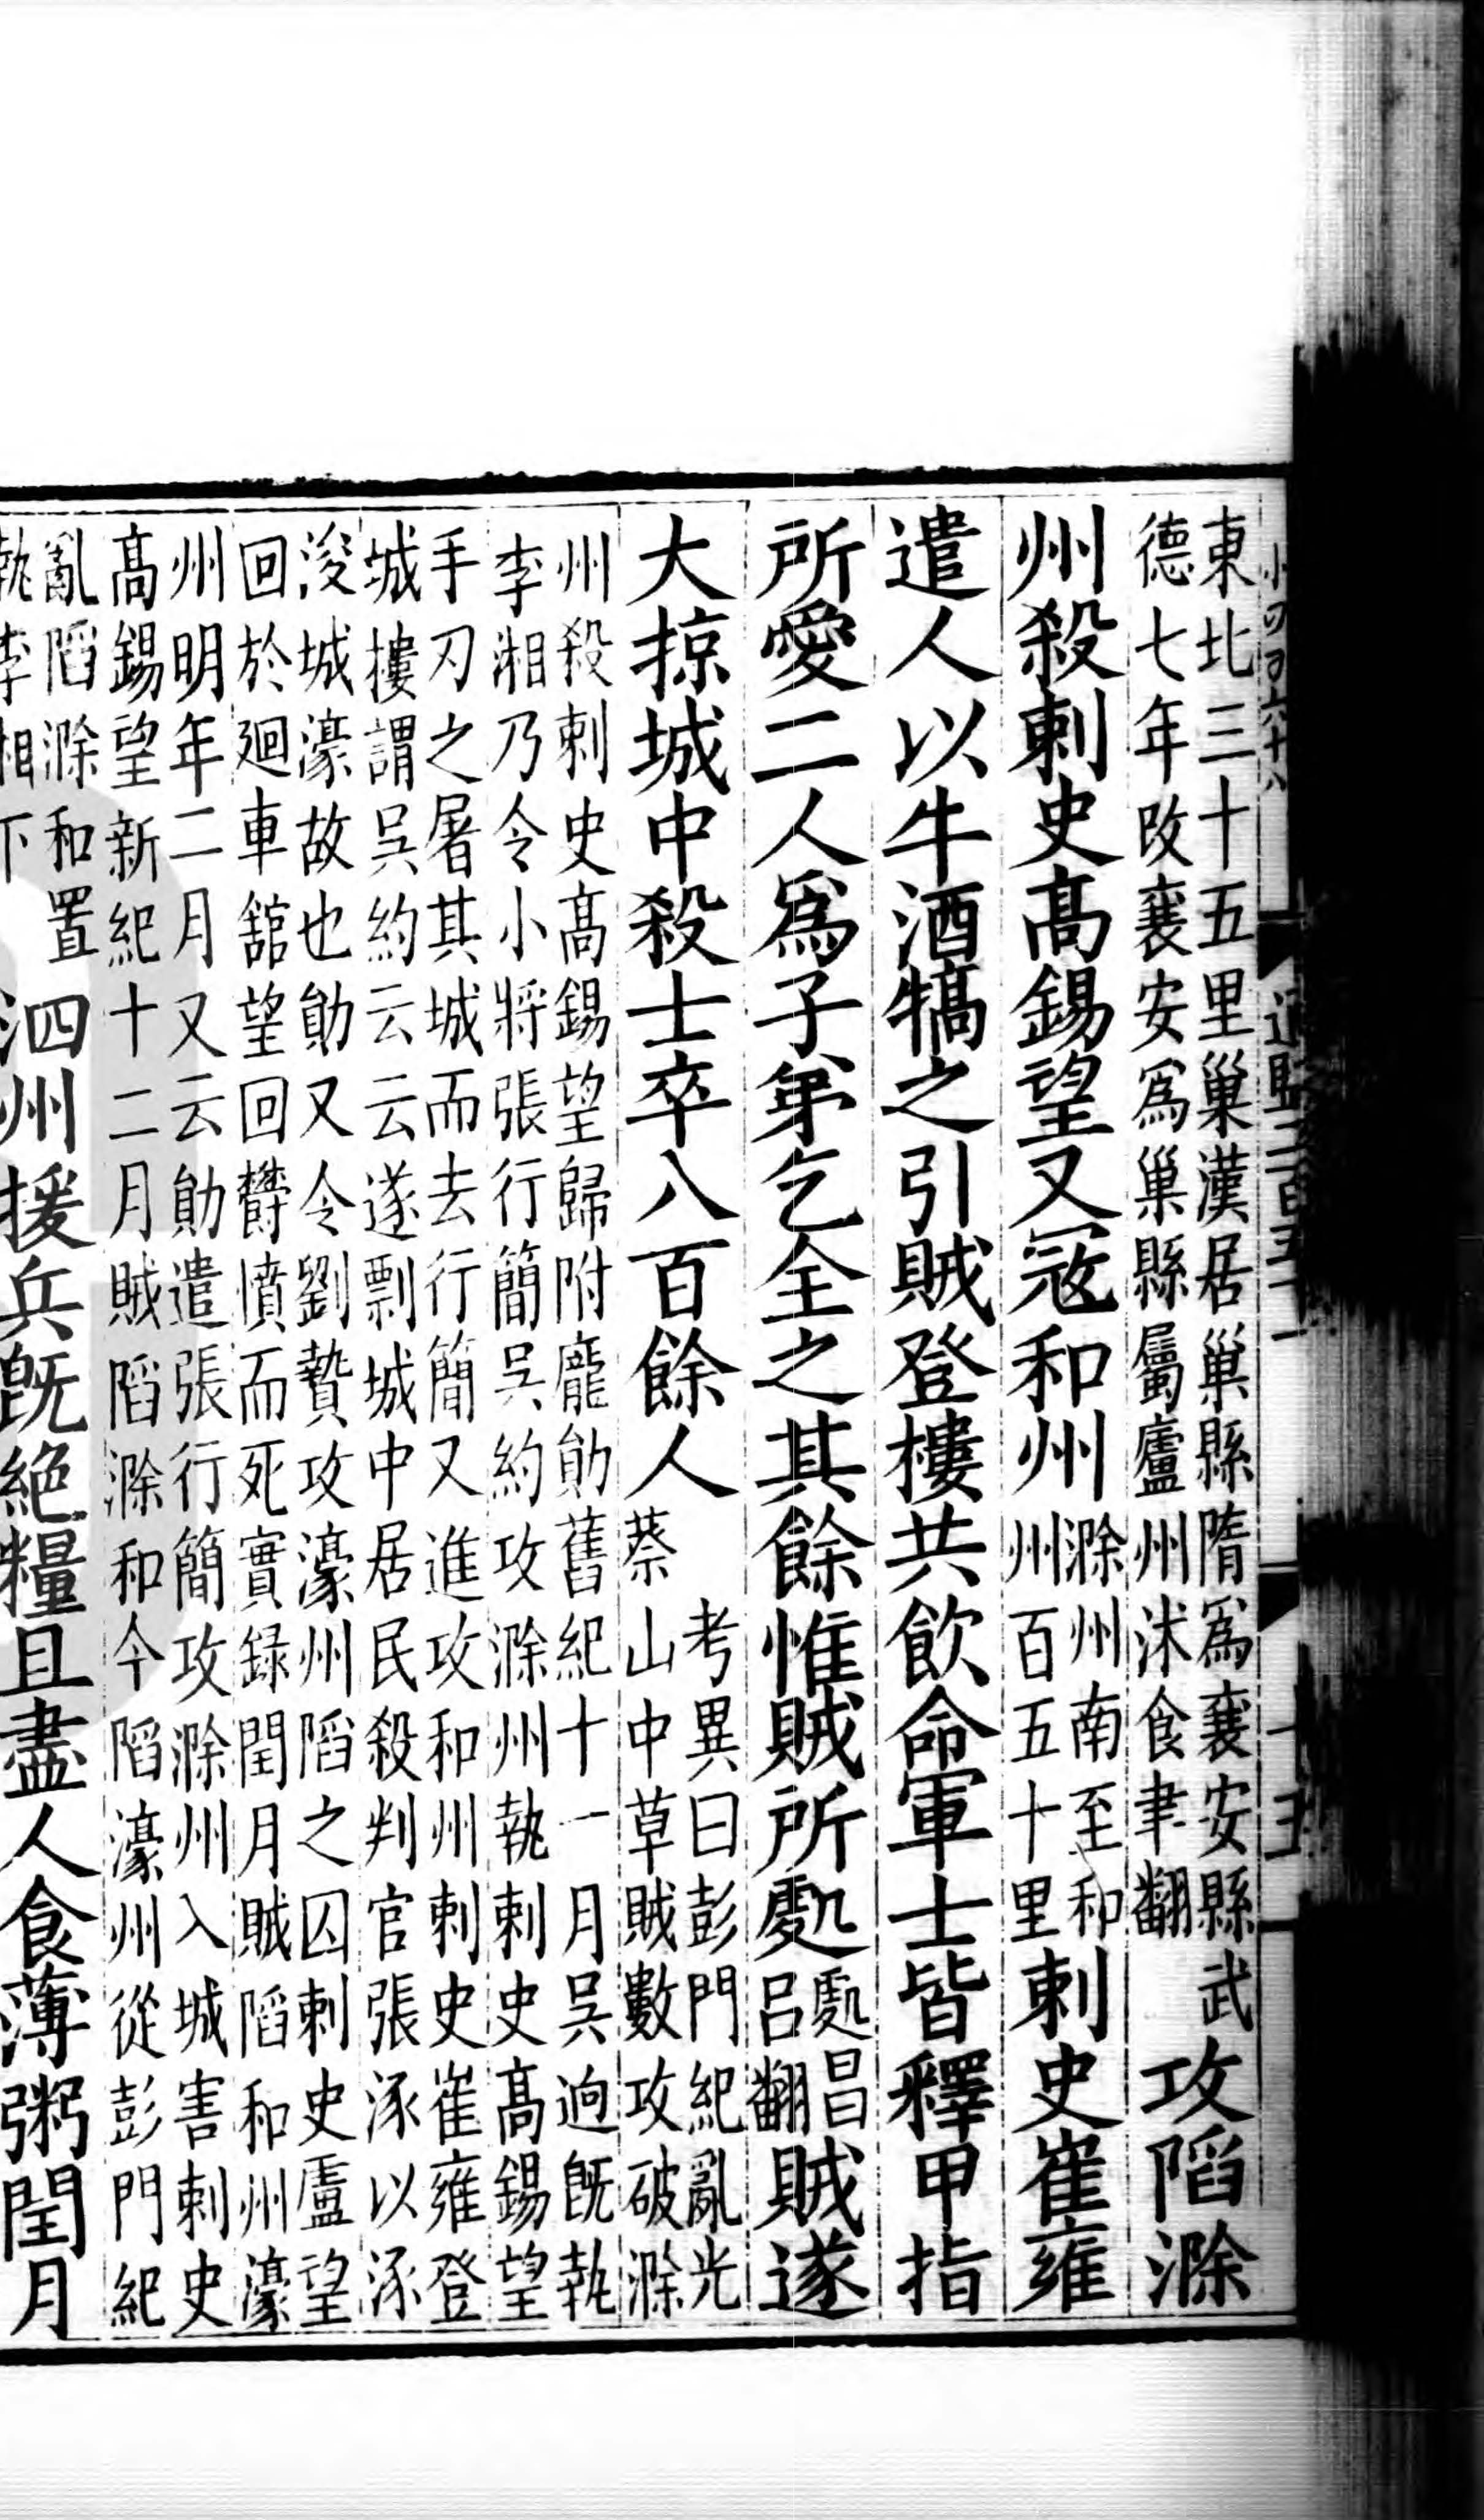 東北三十五里巢漢居巢縣隋爲襄安縣武
德七年改襄安爲巢縣屬廬州沭食聿翻
攻陷滁
州殺刺史高錫望又寇和州
滁州南至和
州百五十里
刺史崔雍
遣人以牛酒犒之引賊登樓共飲命軍士皆釋甲指
所愛二人爲子弟乞全之其餘惟賊所處
處昌
呂翻
賊遂
大掠城中殺士卒八百餘人
考異曰彭門紀亂光
蔡山中草賊數攻破滁
州殺刺史高錫望歸附龐勛舊紀十一月吳迥旣執
李湘乃令小將張行簡吳約攻滁州執刺史高錫望
手刃之屠其城而去行簡又進攻和州刺史崔雍登
城樓謂吳約云云遂剽城中居民殺判官張涿以涿
浚城濠故也勛又令劉贄攻濠州陷之囚刺史盧望
回於廻車舘望回鬱憤而死實録閏月賊陷和州濠
州明年二月又云勛遣張行簡攻滁州入城害刺史
高錫望新紀十二月賊陷滁和今陷濠州從彭門紀
亂陷滁和置
執李相下
泗州援兵旣絶糧且盡人食薄粥閏月